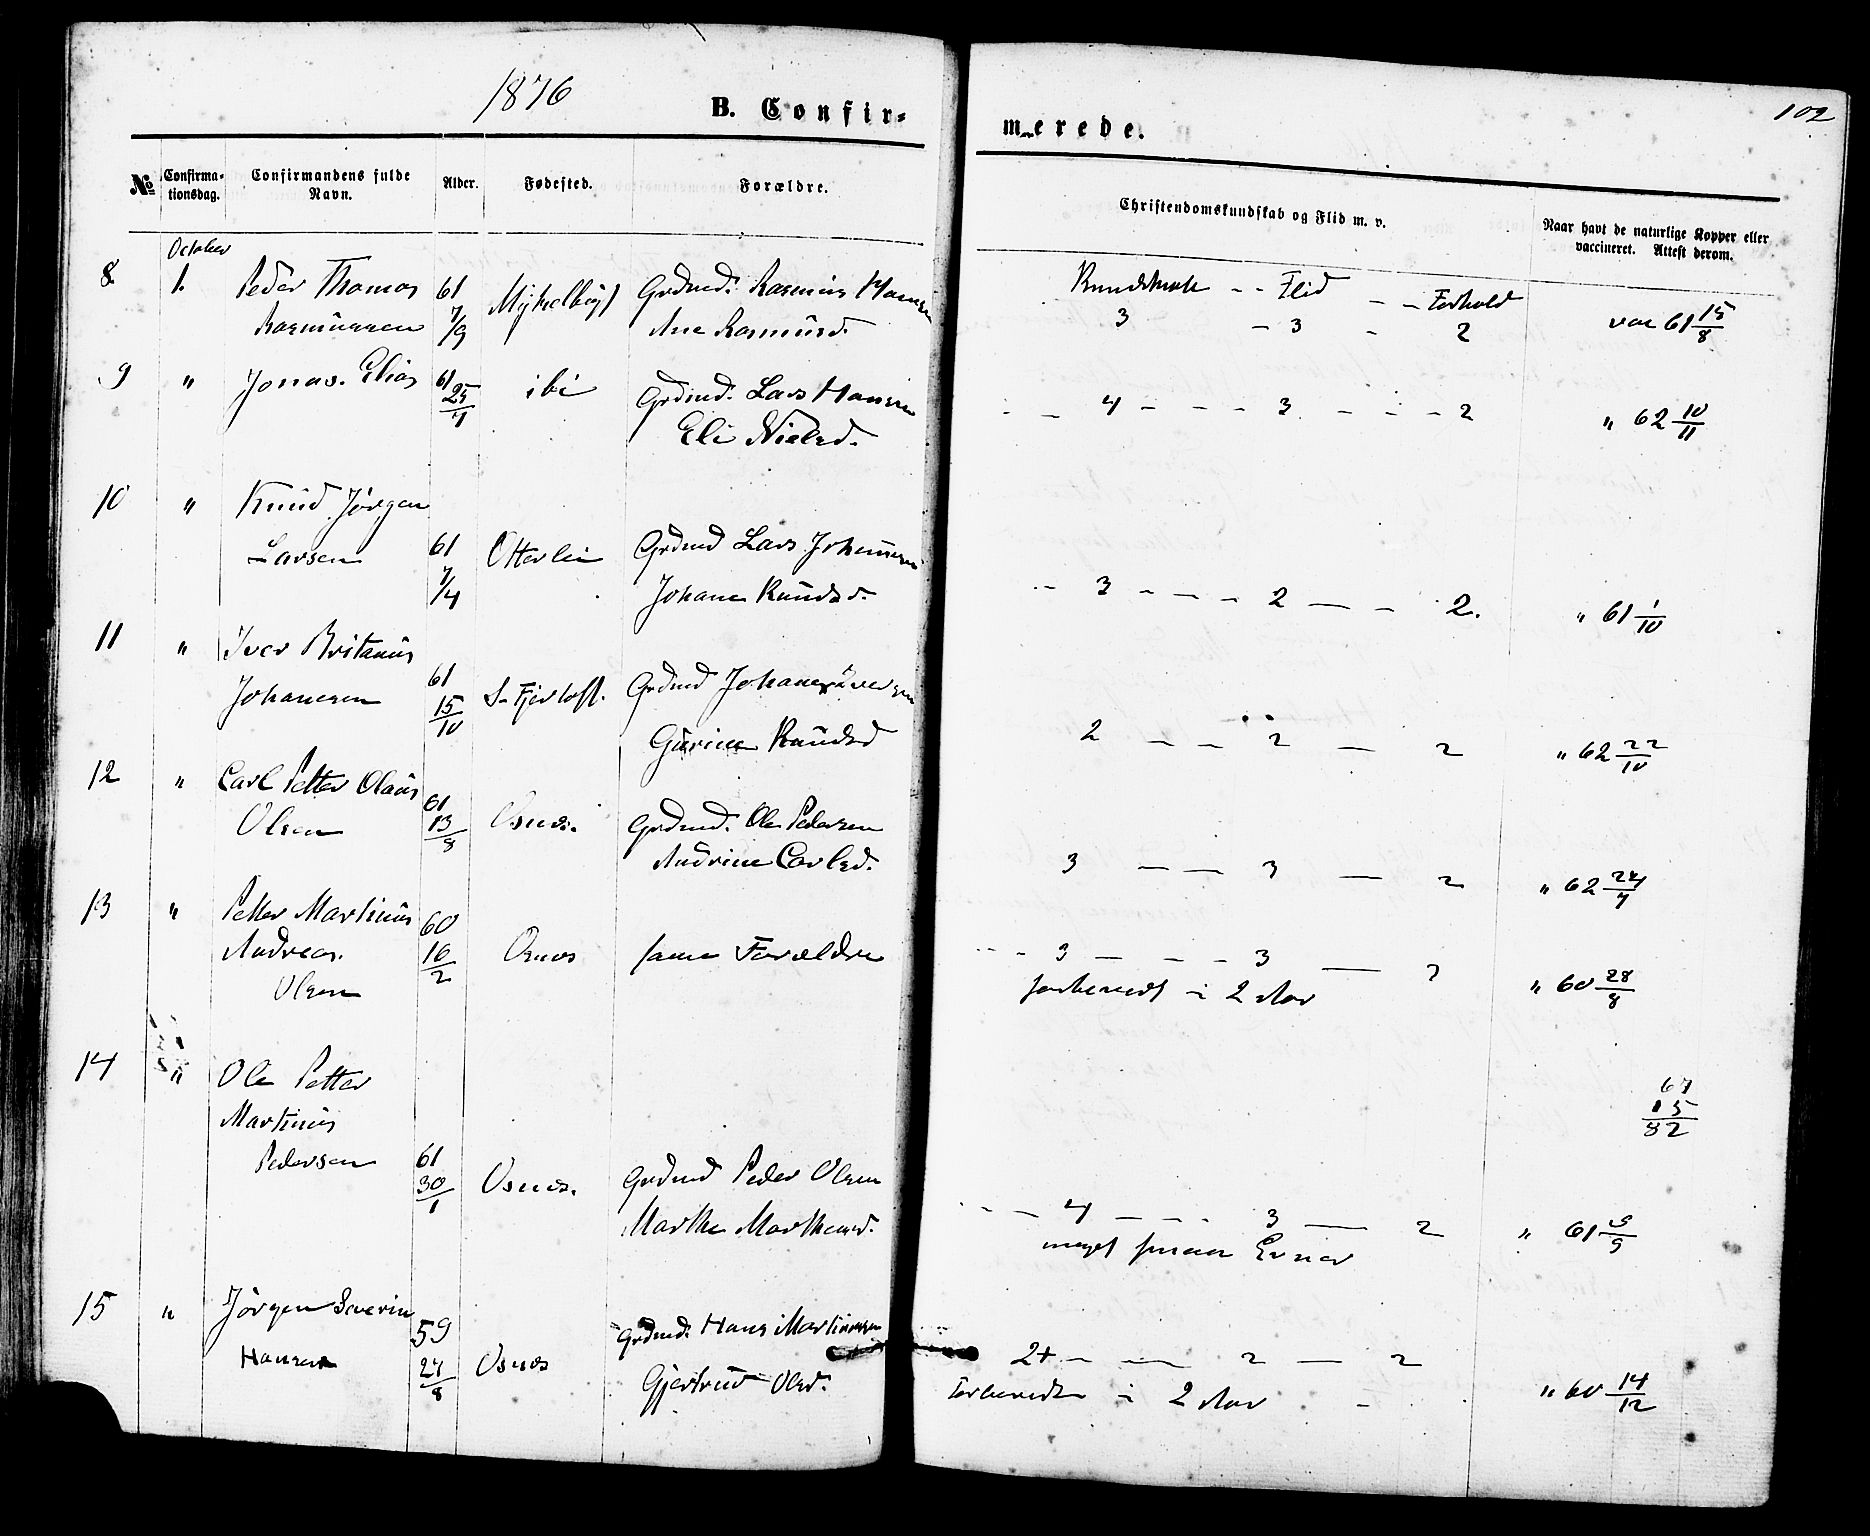 1876
B. Confir-
merede.
102
No
Confirma-
tionsdag.
Confirmandens fulde
Navn.
Alder.
Fødested.
Forældre.
Christendomskundskab og Flid m. v.
Naar havt de naturlige Kopper eller
vaccineret. Attest derom.
October
8 1. Peder Thomas 61 Grdmd. Rasmus Hansen Kundskab - - Flid - - Forhold
Rasmussen 7/9 Ane Rasmusd. 3 - 3 - 2 vac 61 15/8
9 " Jonas Elias 61 25/4 ibi Grdmd. Lars Hansen - - 4 - - - 3 - - - 2 " 62 10/11
Eli Nielsd.
10 " Knud Jørgen
Larsen 61 7/4 Otterlei Grdmd Lars Johansen
Johane Knudsd. -- 3 - - - 2 - - 2. " 61 1/10
11 " Iver Britanus
Johanesen 61 15/10 S. Fjertoft. Grdmd Johanes Iversen
Gurine Knudsd 2 - - 2 - 2 " 62 22/10
12 " Carl Petter Olaus 61 13/8 Osnes. Grdmd. Ole Pedersen
Olsen Andrine Carlsd. 3 - - 3 - 2 " 62 24/4
13 " Petter Martinus 60
Andreas 16/2 Osnes samme Forældre - - 3 - - - 3 - 2 " 60 28/8
Olsen forberedt i 2 Aar
14 " Ole Petter
Martinus
67
15
82
Pedersen 61 30/1 Osnes. Grdmd Peder Olsen
Marthe Marthensd. - - - 4 - - - 3 - 2 " 61 /9
meget smaa Evner
15 " Jørgen Severin 59 Grdmd. Hans Martinussen
Hansen 27/8 Osnes Gjertrud Olsd. 2+ - - 2 - 2 " 60 14/12
Forberedt i 2 Aar